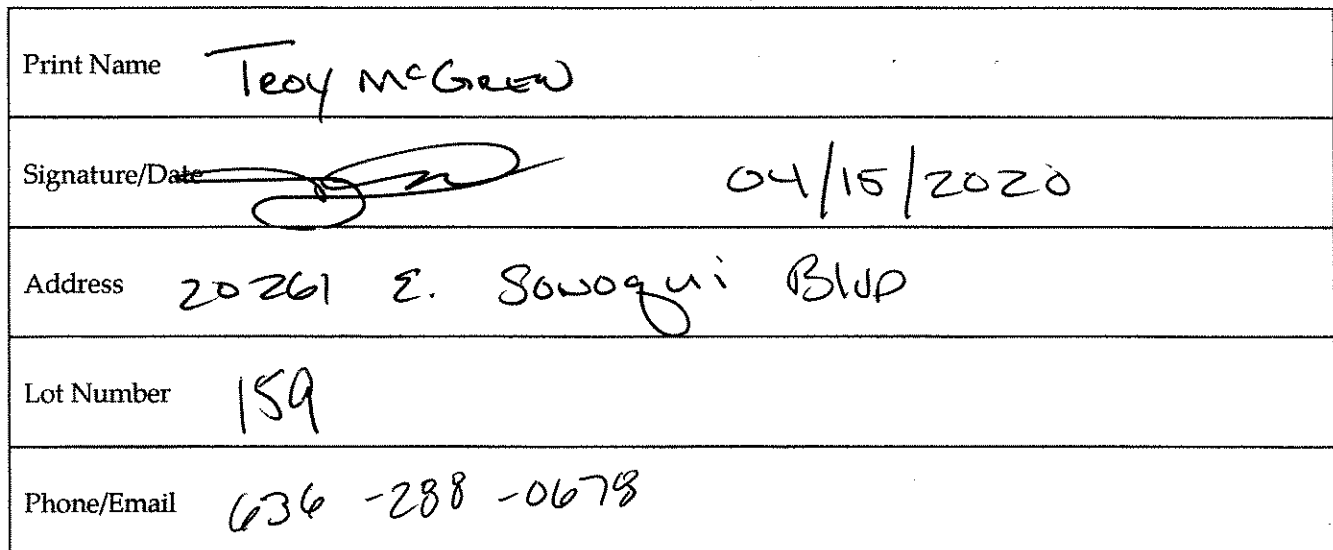 Print Name Troy McGrew
Signature/Date 04/15/2020
Address 20261 E. Sonoqui Blvd
Lot Number 159
Phone/Email 636-288-0678